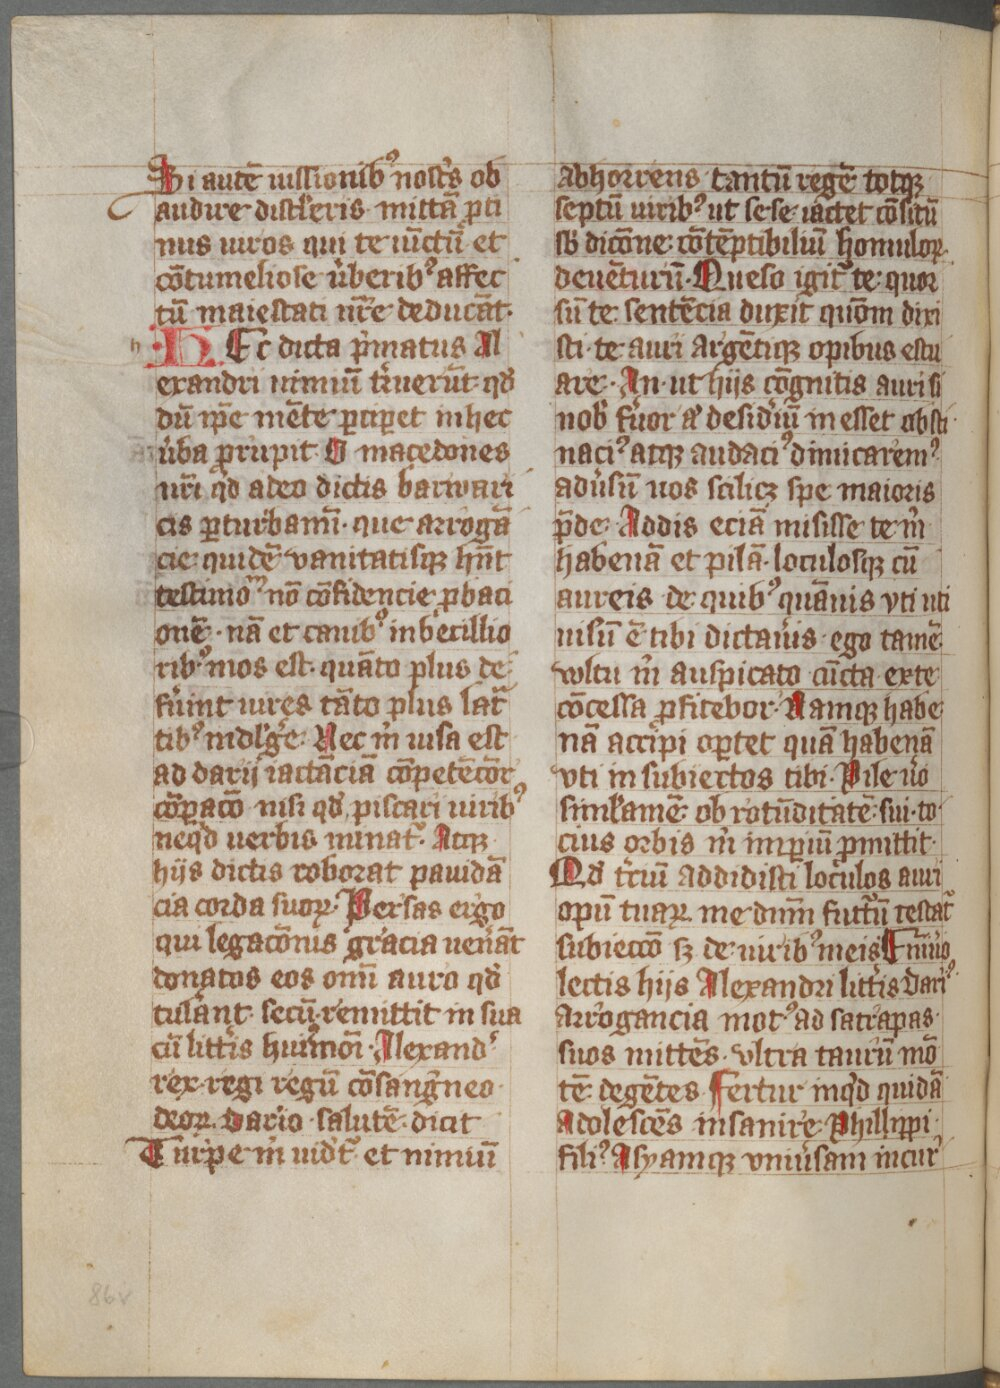 Si autē iussionib⁹ nostrꝭ ob
audire distl̄eris mittā ꝓti
nus uiros qui te uīctū et
cōtumeliose v̄berib⁹ affec
tū maiestati nr̄e deducāt.
h HEc dicta p̄matus Al
exandri nimiū tr̄uerūt qd̄
dū ip̄e mēte ꝑciꝑet in hec
ūba ꝓrupit O macedones
uīri qd̄ adeo dictis barwari
cis ꝑturbamī. que arrogā
cie quidē vanitatisqꝫ hn̄t
testimoᵐ nō cōfidencie ꝓbaci
onē. nā et canib⁹ inbecillio
rib⁹ mos est. quāto plus de
fuīnt uires tāto plus lat̄
tib⁹ indl̓gē. Nec m̄ uisa est
ad darij iactāciā cōpetēcōr
cōꝑacō nisi qd̄ piscari uirib⁹
neqd̄ uerbis minat̄. Atqꝫ
hijs dictis roborat pauidā
cia corda suoꝝ. Persas ergo
qui legacōnis gracia uen̄āt
donatos eos om̄i auro qd̄
tul̄ant secū remittit in sua
cū litt̄is hui⁹moī. Alexand̓
rex regi regū cōsang̓neo
deoꝝ dario salutē dicit
Turpe m̄ uid̄t̄ et nimiū
abhorrens tantū regē totqꝫ
septū uirib⁹ ut se se iactet cōsitū
sb̄ dicōne cōtēptibiliū homuloꝝ
deuēturū. Queso igit̄ te quor
sū te sentēcia duxit quōm dixi
sti te auri argētiqꝫ opibus estu
are. An ut hijs cōgnitis auri si
nob̄ fu̓or aꝉ desid̓iū in esset obsti
naci⁹ atqꝫ audaci⁹ dimicarem⁹
adu̓sū uos scilicꝫ spe maioris
p̄de. Addis eciā misisse te m̄
habenā et pilā. loculosqꝫ cū
aureis de quib⁹ quāuis vti uti
uisū ē tibi dictau̓is ego tamē
vultu m̄ auspicato cūcta exte
cōcessa ꝓfitebor. Namqꝫ habe
nā accipi oꝑtet quā habenā
vti in subiectos tibi. Pile u̓o
simlr̄amē ob rotūditatē sui to
cius orbis m̄ imꝑiū ꝓmittit.
Qd̄ t̓ciū addidisti loculos auri
opū tuaꝝ me dnm̄ futūrū testat̄
subieccō sꝫ de uirib⁹ meis Em̄uo
lectis hijs Alexandri litt̓is dari⁹
Arrogancia mot⁹ ad satrapas
suos mittēs. vltra taurū mō
tē degētes Fertur inqd̄ quidā
Adolescēs insanire. Phillippi
fili⁹ Asyamqꝫ vniu̓sam incur̓